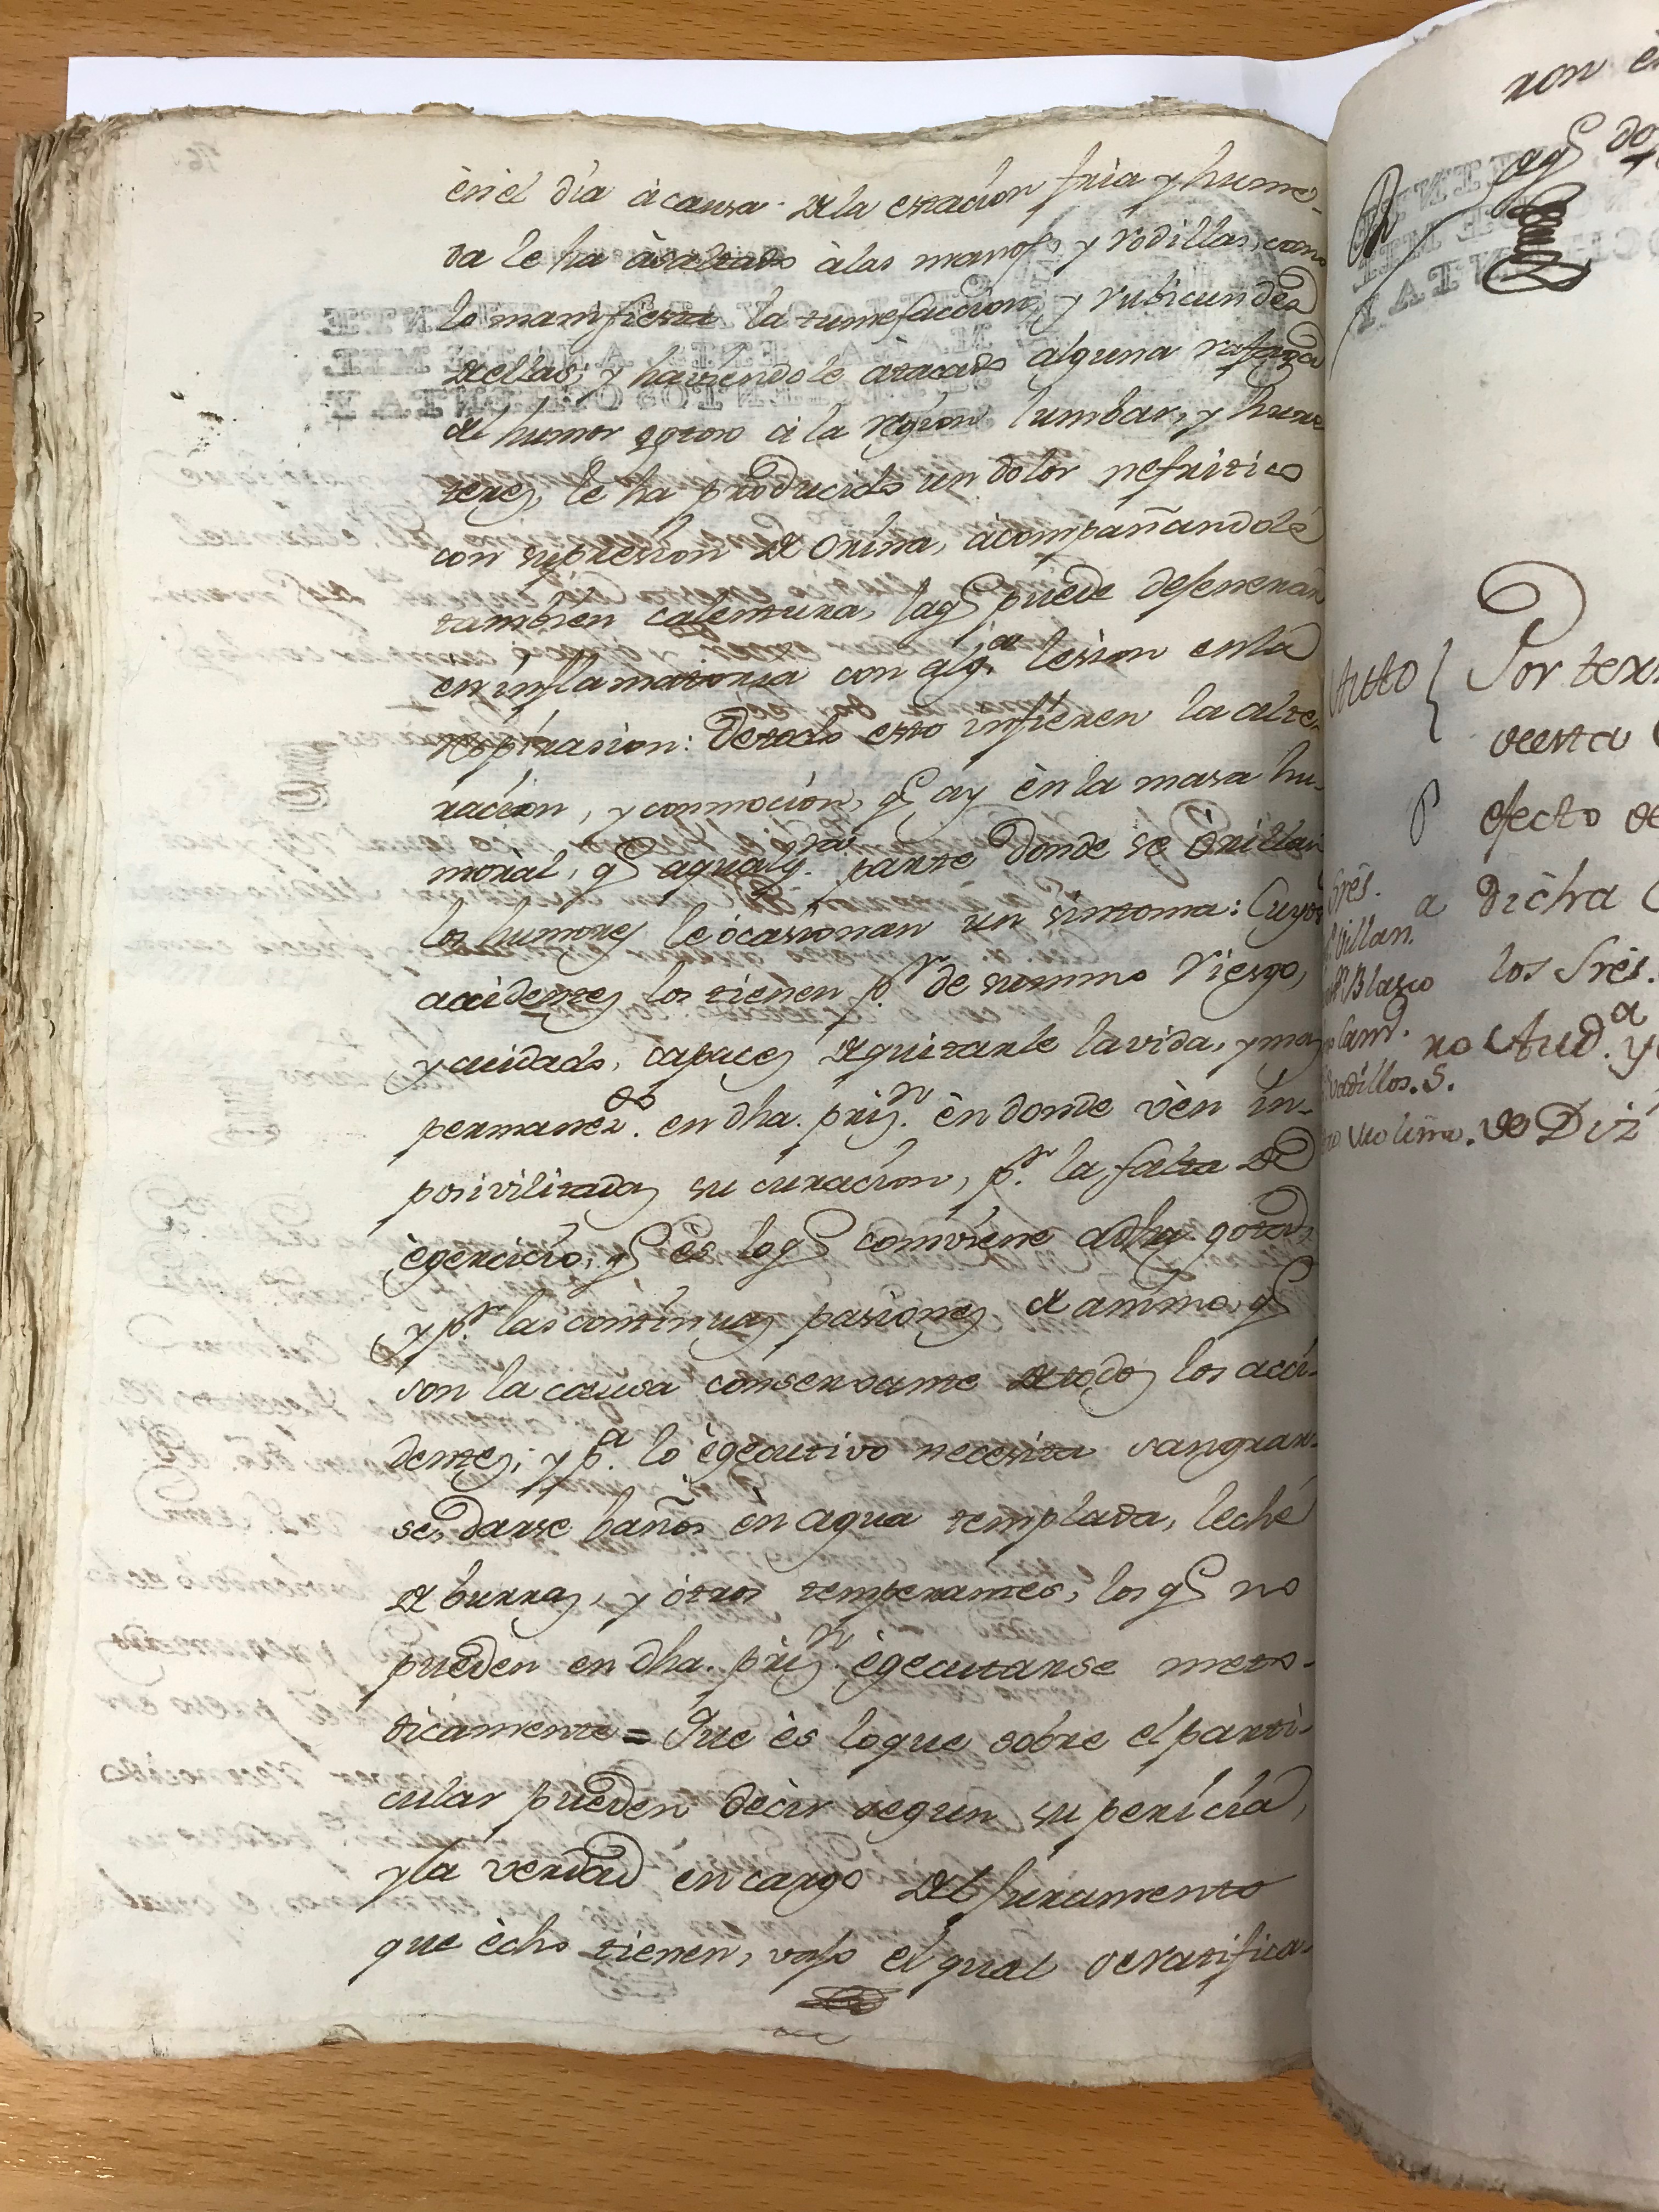 èn el dia à causa de la estacion fria y hume-
da le ha àsaltado à las manos, y rodillas, como
lo manifiesta la tumefaccion, y rubicundèz
de ellas; y haviendole àtacado alguna rafaga
del humor gotoso à la región lumbar, y hure-
teres, le ha producido un dolor nefritico
con supresion de Orina, àcompañandole
tambien calentura, la q.e puede dejenerar
en inflamatoria con alg.a lesion en la
respirasion: de todo esto infieren la alte-
racion, y conmocion, q.e ay èn la masa hu-
moral, q.e a qualq.ra parte donde se Orillan
los humores le òcasionan un sintoma: Cuyos
accidentes los tienen p.r de summo riesgo,
y cuidado, capaces de quitarle la vida, y mas
permanez.do en dha. pris.n èn donde vèn im-
posivilitada su curacion, p.r la falta de
ègercicio, q.e ès lo q.e comviene a dha gota,
y p.r las continuas pasiones de animo, q.e
son la causa conservante de todos los acci-
dentes; y p.a lo ègecutivo necesita sangrar-
se, darse baños èn agua templada, leche
de burras, y òtros temperantes, los q.e no
pueden en dha. pris.n ègecutarse meto-
dicamente = Que ès lo que sobre el parti-
cular pueden decir segun su pericia,
y la verdad en cargo del juramento
que ècho tienen, vajo el qual se ratifica-
ron
Auto { Por
efecto de
a dicha
Sres.
Villan.
Blasco
los Sres.
no Aud.a y
Vadillos. S.